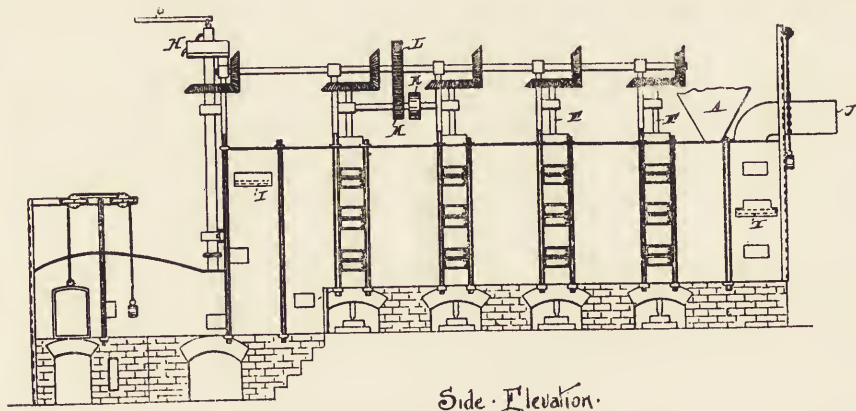 H
L
K
K
E
E
A
J
I
I
Side · Elevation ·